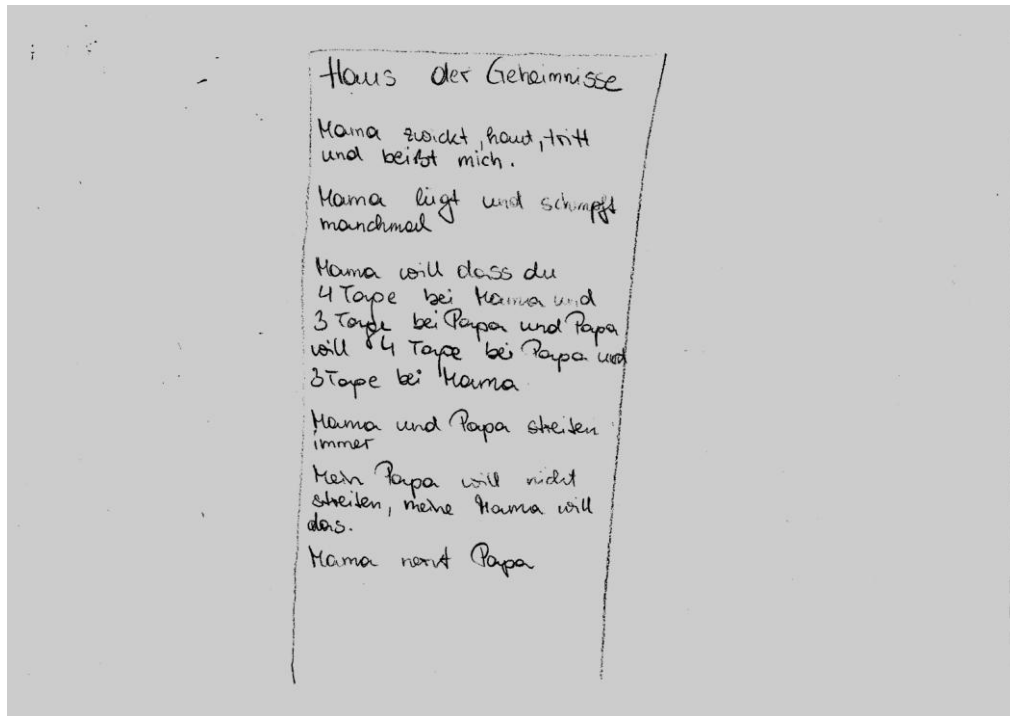 Haus der Geheimnisse
Mama zwickt, haut, tritt
und beißt mich.
Mama lügt und schimpft
manchmal
Mama will dass du
4 Tage bei Mama und
3 Tage bei Papa und Papa
will 4 Tage bei Papa und
3 Tage bei Mama
Mama und Papa streiten
immer
Mein Papa will nicht
streiten, meine Mama will
das.
Mama nervt Papa